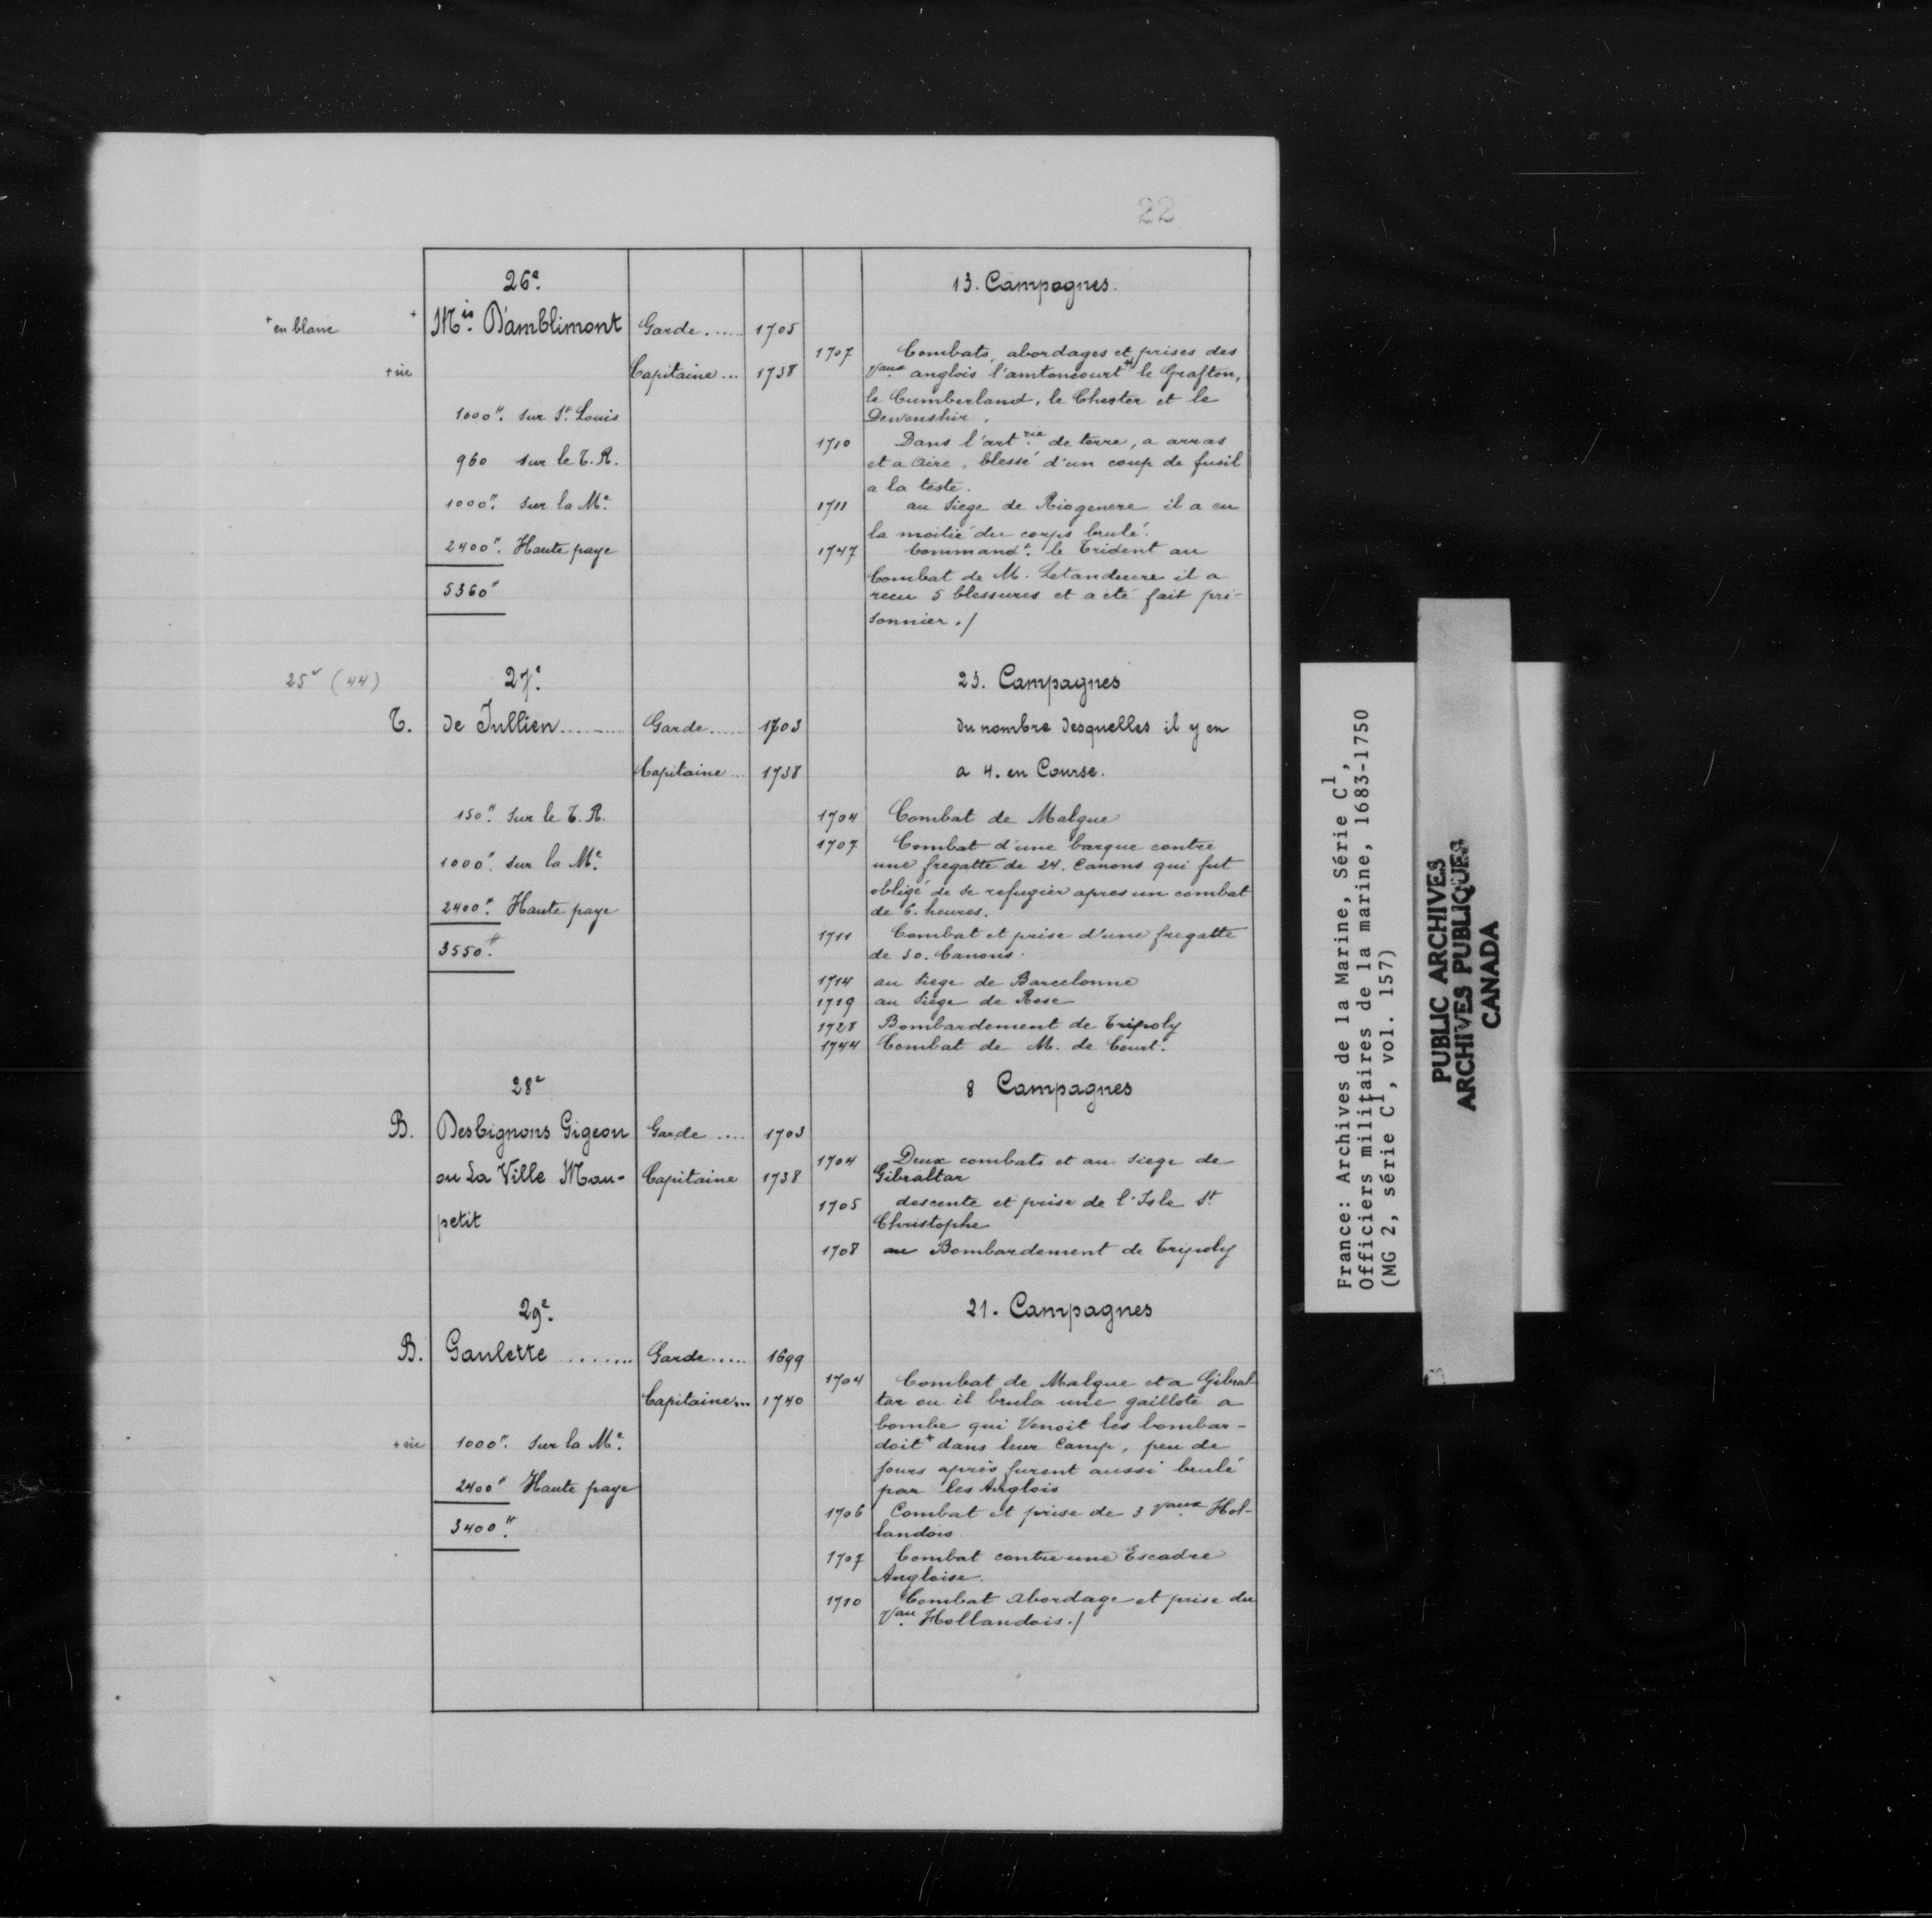 22
26e.
13. Campagnes.
+ en blanc
+ Mis. D'amblimont Garde..... 1705
1707 Combats, abordages et prises des
+ sic Capitaine... 1738 Vaux anglois l'amtoncourt + le Grafton,
le Cumberland, le Chester et le
1000#. sur St. Louis Dewonshir.
1710 Dans l'artrie. de terre, a arras
960 sur le T. R. et a Aire, blessé d'un coup de fusil
a la teste.
1000#. sur la Me. 1711 au Siege de Riogenere il a eu
la moitié du corps brulé.
2400#. Haute paye 1747 Commandt. le Trident au
Combat de M. Letanduere il a
5360# recu 5 blessures et a eté fait pri-
sonnier./
25v (44) 27e. 23. Campagnes
T. de Jullien......... Garde...... 1703 du nombre desquelles il y en
Capitaine... 1738 a 4. en Course.
150#. sur le T. R. 1704 Combat de Malgue
1707 Combat d'une barque contre
1000#. sur la Me. une fregatte de 24. Canons qui fut
obligé de se refugier apres un combat
2400#. Haute paye de 6. heures.
1711 Combat et prise d'une fregatte
3550#. de 30. Canons.
1714 au siege de Barcelonne
1719 au Siege de Rose
1728 Bombardement de Tripoly
1744 Combat de M. de Court.
28e 8 Campagnes
B. Desbignons Gigeon Garde .... 1703
1704 Deux combats et au siege de
ou La Ville Mau- Capitaine 1738 Gibraltar
1705 descente et prise de l'Isle St.
petit Christophe
1708 au Bombardement de Tripoly
29e. 21. Campagnes
B. Gaulette ........ Garde..... 1699
1704 Combat de Malgue et a Gibral-
Capitaine... 1740 tar ou il brula une gaillote a
bombe qui Venoit les bombar-
+ sic 1000#. sur la Me. doit + dans leur Camp, peu de
jours après furent aussi brulé
2400# Haute paye par les Anglois
1706 Combat et prise de 3 Vaux. Hol-
3400#. landois.
1707 Combat contre une Escadre
Angloise.
1710 Combat Abordage et prise du
Vau. Hollandois./
France: Archives de la Marine, Série C1,
Officiers militaires de la marine, 1683-1750
(MG 2, série C1, vol. 157)
PUBLIC ARCHIVES
ARCHIVES PUBLIQUES
CANADA